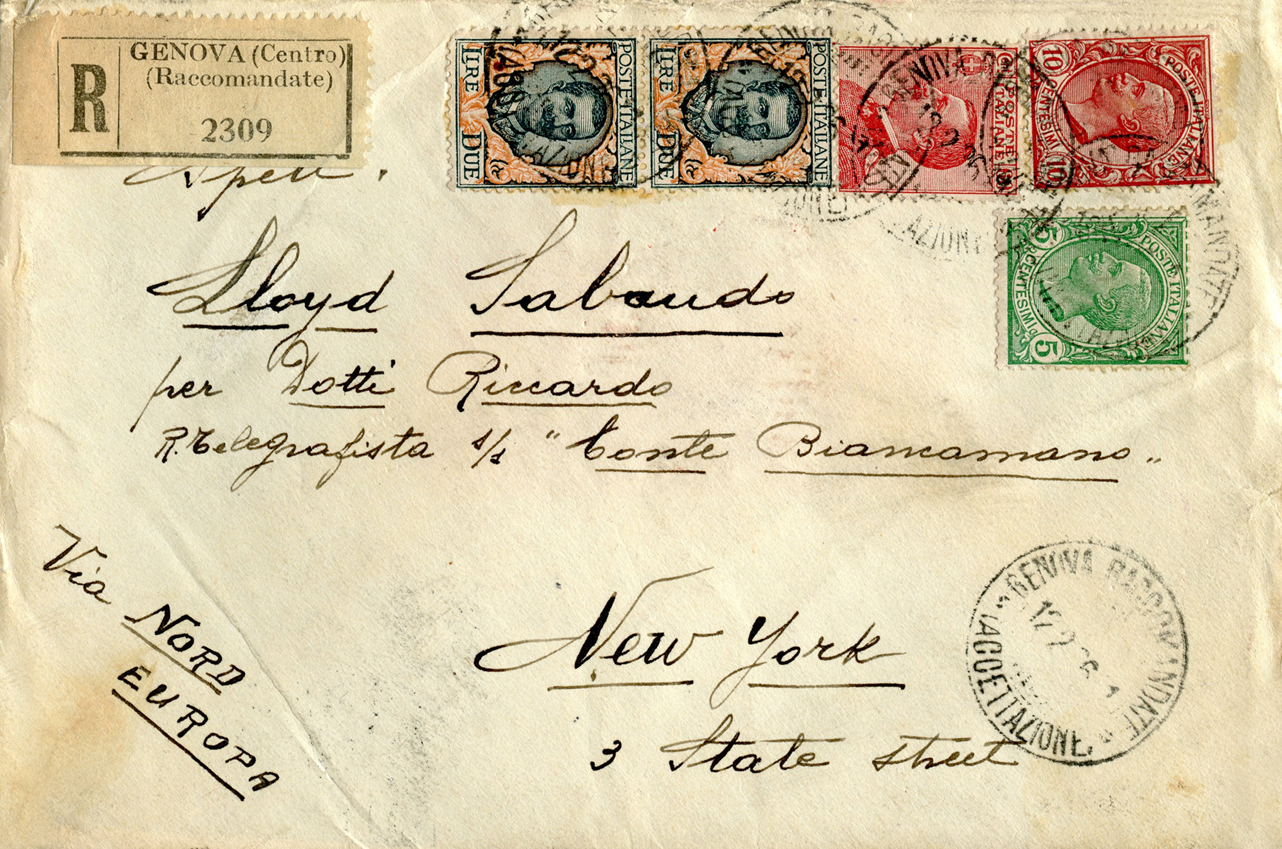 R
GENOVA (Centro)
(Raccomandate)
2309
POSTE·ITALIANE
LIRE DUE
POSTE·ITALIANE
LIRE DUE
POSTE
ITALIANE
POSTE ITALIANE
10 CENTESIMI 10
POSTE ITALIANE
5 CENTESIMI 5
Spett.
Lloyd Sabaudo
per Dotti Riccardo
R.Telegrafista s/s "Conte Biancamano"
Via NORD
EUROPA
New York
3 State street
GENOVA RACCOMANDATE
(ACCETTAZIONE)